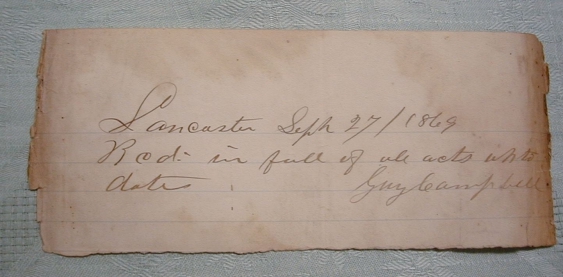 Lancaster Sept 27/1869
Recd. in full of all acts upto
date
Guy Campbell